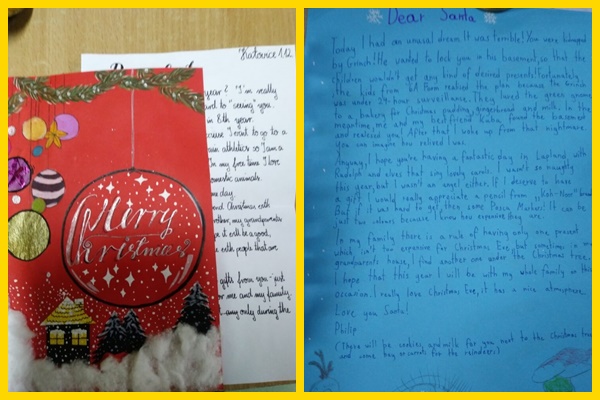 Katowice 1.12
year? I'm really
to "seeing" you
in 8th year.
cause I want to go to a
train athletics so I am a
In my free time I love
domestic animals.
day.
Christmas with
my grandparents
it will be a good,
with people that are
gifts from you - just
me and my family
any only during the
Merry
Christmas
Dear Santa
Today I had an unusal dream. It was terrible! You were kidnapped
by Grinch! He wanted to lock you in his basement, so that the
children wouldn't get any kind of desired presents! Fortunately,
the kids from realised the plan because the Grinch
was under 24-hour surveillance. They lured the green gnome
to a bakery for Christmas pudding, gingerbread and milk. In the
meantime, me and my best friend Kuba, found the basement
and realesed you. After that I woke up from that nightmare
you can imagine how relived I was.
Anyway, I hope you're having a fantastic day in Lapland, with
Rudolph and elves that sing lovely carols. I wasn't so naughty
this year, but I wasn't an angel either. If I deserve to have
a gift, I would really appreciate a from brand
But if it was hard to get, then some It can be
in two colours because I know how expensive they are.
In my family there is a rule of having only one present
which isn't too expensive for Christmas Eve, but sometimes in my
grandparents house, I find another one under the Christmas tree.
I hope that this year I will be with my whole family on this
occasion. I really love Christmas Eve, it has a nice atmosphere.
Love you Santa!
Philip
(There will be cookies and milk for you next to the Christmas tree
and some hay or carrots for the reindeers)